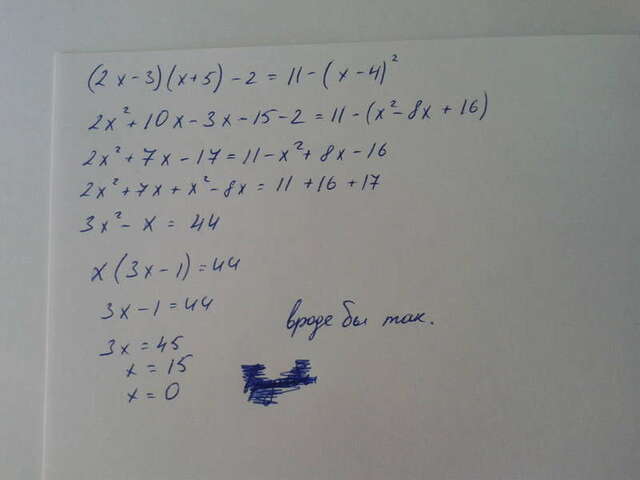 (2x-3)(x+5)-2=11-(x-4)²
2x²+10x-3x-15-2=11-(x²-8x+16)
2x²+7x-17=11-x²+8x-16
2x²+7x+x²-8x=11+16+17
3x²-x=44
x(3x-1)=44
3x-1=44
вроде бы так.
3x=45
x=15
x=0